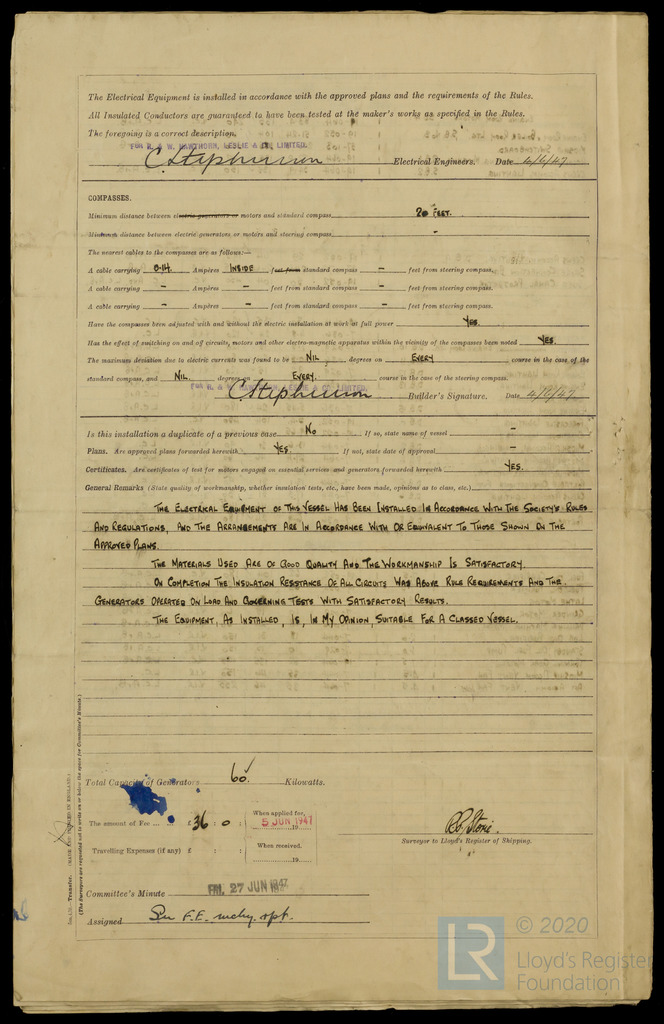 The Electrical Equipment is installed in accordance with the approved plans and the requirements of the Rules.
All Insulated Conductors are guaranteed to have been tested at the maker's works as specified in the Rules.
The foregoing is a correct description.
FOR R. & W. HAWTHORN, LESLIE & CO. LIMITED.
C Stephenson Electrical Engineers. Date 4/6/47
COMPASSES.
Minimum distance between electric generators or motors and standard compass 20 FEET.
Minimum distance between electric generators or motors and steering compass -
The nearest cables to the compasses are as follows:—
A cable carrying 0.14. Ampères INSIDE feet from standard compass - feet from steering compass.
A cable carrying - Ampères - feet from standard compass - feet from steering compass.
A cable carrying - Ampères - feet from standard compass - feet from steering compass.
Have the compasses been adjusted with and without the electric installation at work at full power YES.
Has the effect of switching on and off circuits, motors and other electro-magnetic apparatus within the vicinity of the compasses been noted YES.
The maximum deviation due to electric currents was found to be NIL degrees on EVERY course in the case of the
standard compass, and NIL. degrees on EVERY. course in the case of the steering compass.
FOR R. & W. HAWTHORN, LESLIE & CO. LIMITED.
C Stephenson Builder's Signature. Date 4/6/47.
Is this installation a duplicate of a previous case No If so, state name of vessel -
Plans. Are approved plans forwarded herewith YES. If not, state date of approval -
Certificates. Are certificates of test for motors engaged on essential services and generators forwarded herewith YES.
General Remarks (State quality of workmanship, whether insulation tests, etc., have been made, opinions as to class, etc.)
THE ELECTRICAL EQUIPMENT OF THIS VESSEL HAS BEEN INSTALLED IN ACCORDANCE WITH THE SOCIETY'S RULES
AND REGULATIONS, AND THE ARRANGEMENTS ARE IN ACCORDANCE WITH OR EQUIVALENT TO THOSE SHOWN ON THE
APPROVED PLANS.
THE MATERIALS USED ARE OF GOOD QUALITY AND THE WORKMANSHIP IS SATISFACTORY.
ON COMPLETION THE INSULATION RESISTANCE OF ALL CIRCUITS WAS ABOVE RULE REQUIREMENTS AND THE
GENERATORS OPERATED ON LOAD AND GOVERNING TESTS WITH SATISFACTORY RESULTS.
THE EQUIPMENT, AS INSTALLED, IS, IN MY OPINION, SUITABLE FOR A CLASSED VESSEL.
Total Capacity of Generators 60. Kilowatts.
The amount of Fee ... ... £ 36 : 0 : When applied for, 5 JUN 1947 19
Surveyor to Lloyd's Register of Shipping.
Travelling Expenses (if any) £ : : When received, 19
Committee's Minute FRI. 27 JUN 1947
Assigned See F.E. mchy. rpt.
(MADE AND PRINTED IN ENGLAND.)
(The Surveyors are requested not to write on or below the space for Committee's Minute.)
© 2020
LR Lloyd's Register
Foundation